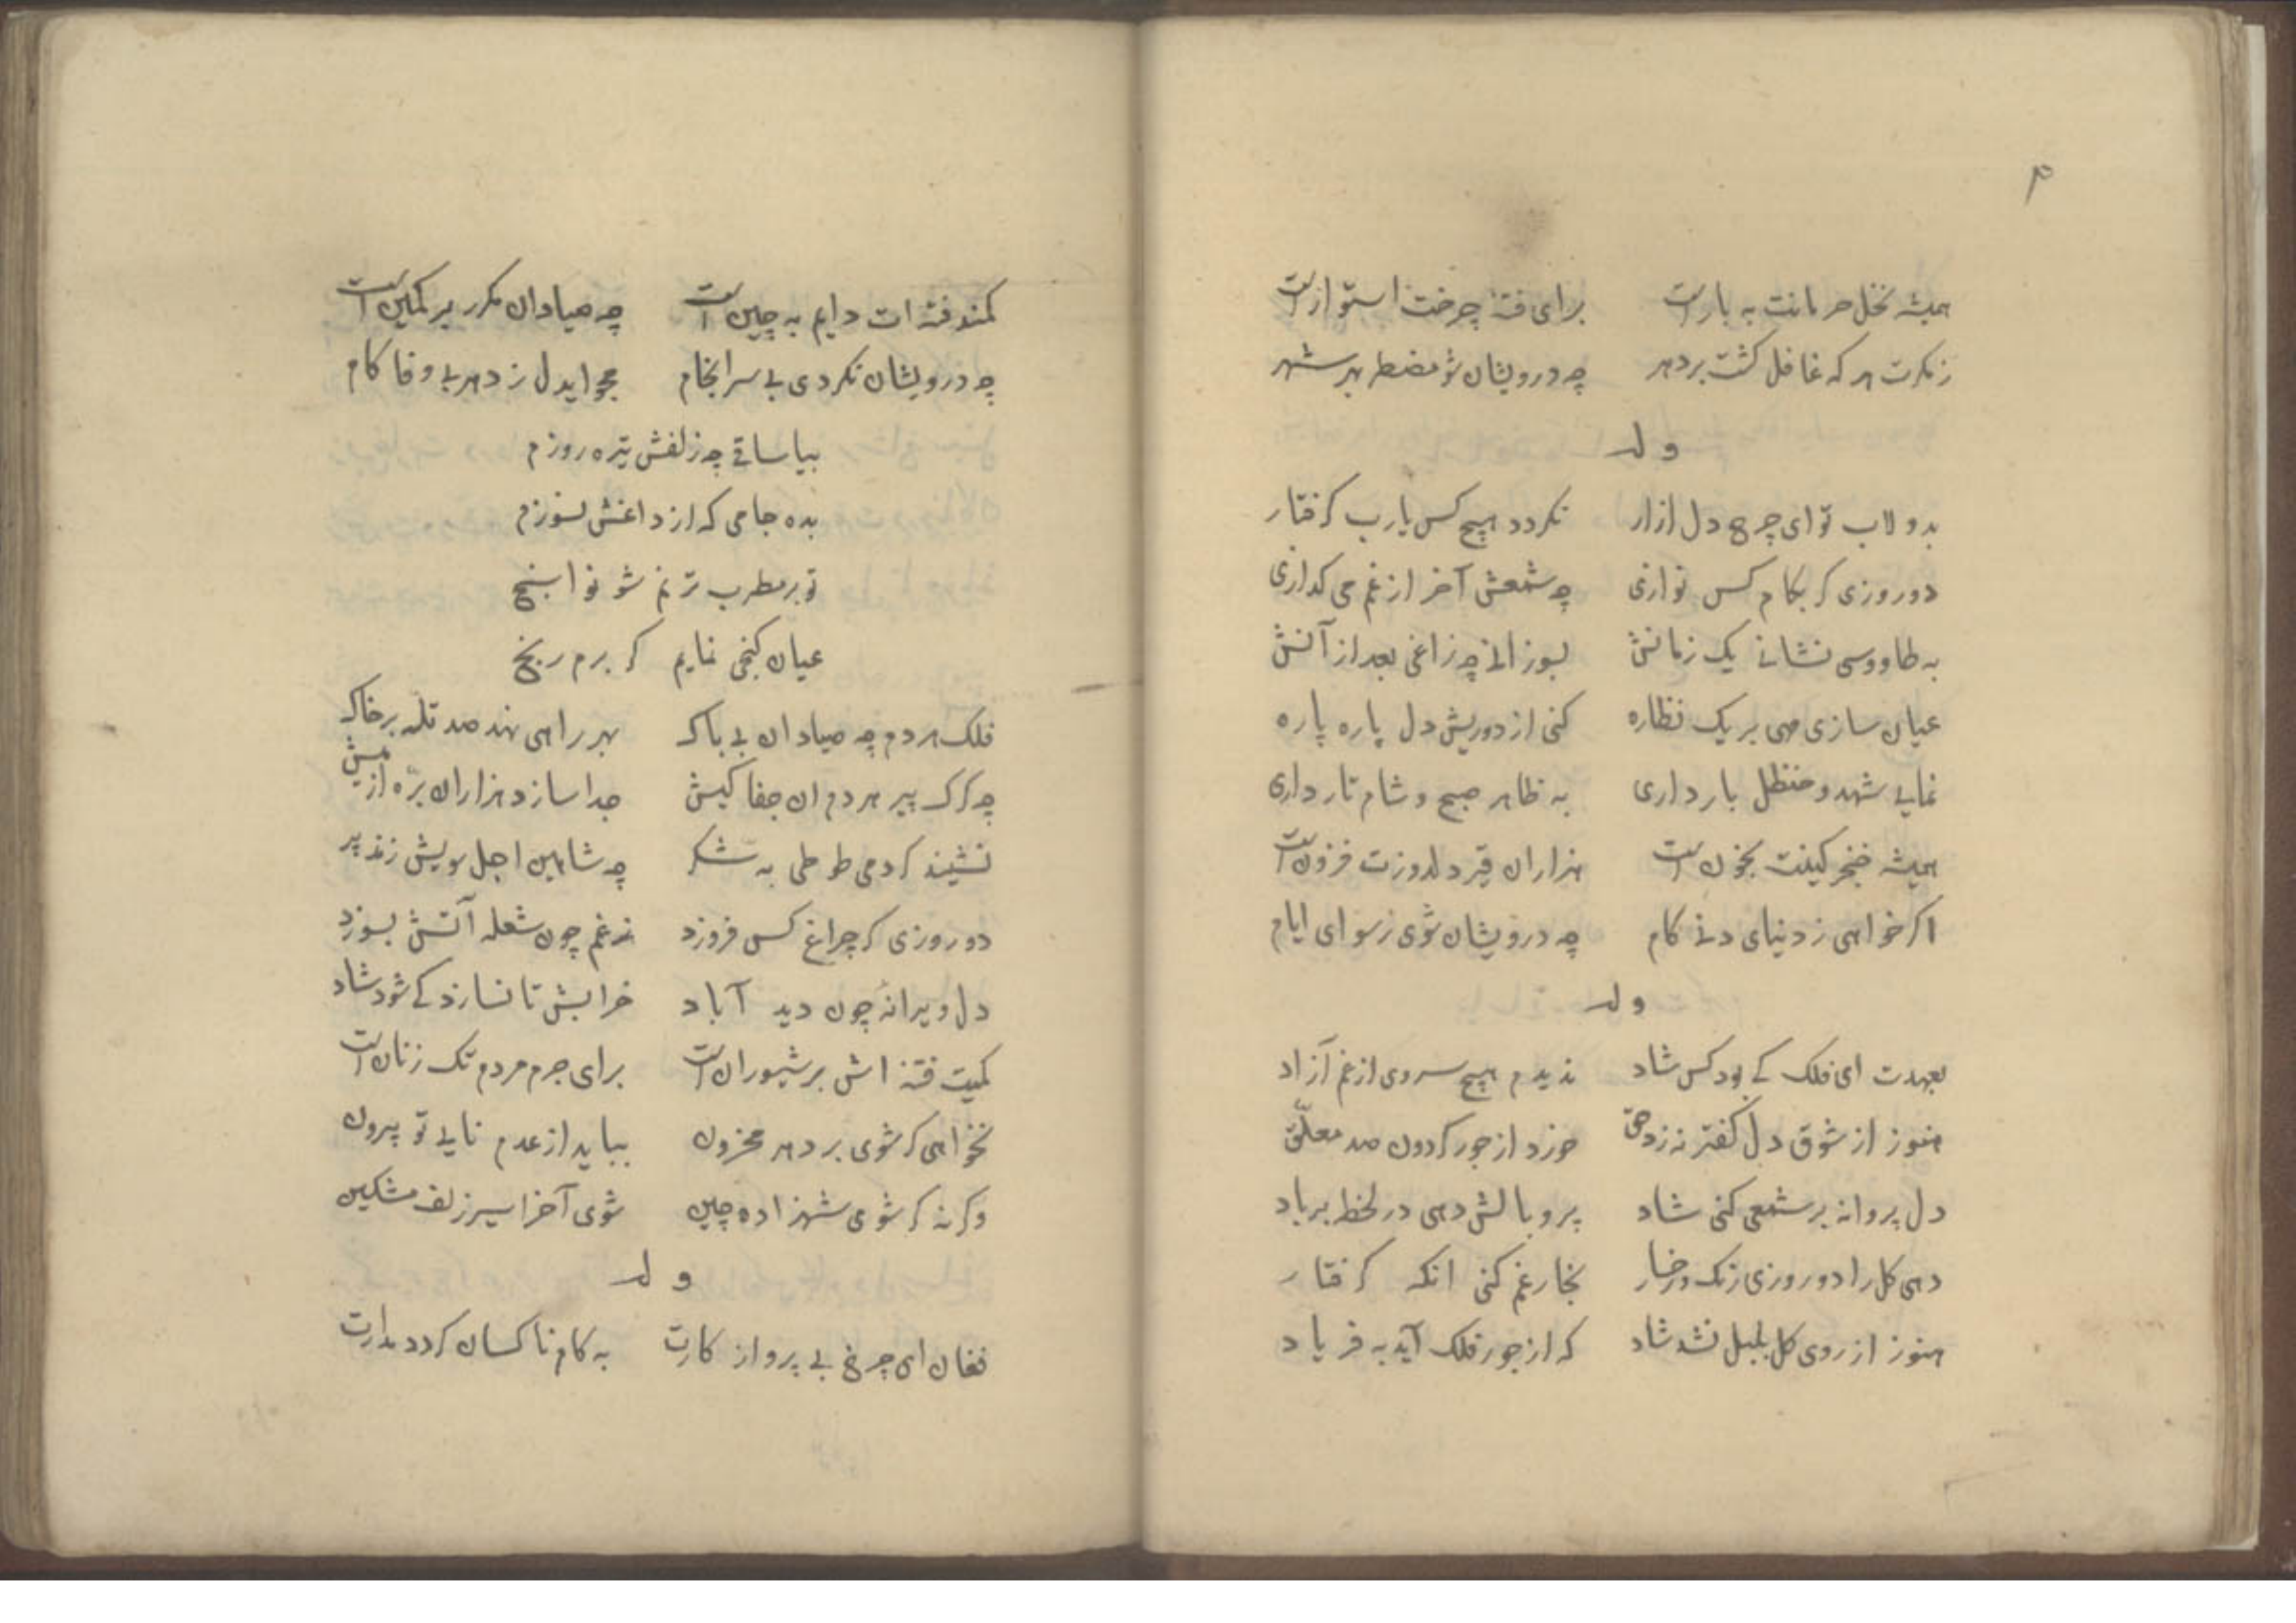 ۳
همیشه نخل حرمانت به بارست برای فتنه چرخت استوارست
ز مکرت هر که غافل کشت بر دهر چه درویشان شو مضطر بهر شهر
وله
بدولاب تو ای چرخ دل ازار نکردد هیچ کس یارب کرفتار
دو روزی کر بکام کس نوازی چه شمعش آخر از غم می کدازی
به طاووسی نشانی یک زمانش بسوزانی چه زاغی بعد از آنش
عیان سازی مهی بر یک نظاره کنی از دوریش دل پاره پاره
نمایی شهد و حنظل بار داری به ظاهر صبح و شام تار داری
همیشه خنجر کینت بخون است هزاران تیر دلدوزت فزون است
اکر خواهی ز دنیای دنی کام چه درویشان شوی رسوای ایام
وله
بعهدت ای فلک کی بود کس شاد ندیدم هیچ سروی از غم آزاد
هنوز از شوق دل نزد حق خورد از جور کردون صد معلّق
دل پروانه بر شمعی کنی شاد پر و بالش دهی در لحظه بر باد
دهی کل را دو روزی رنک رخسار بخار غم کنی انکه کرفتار
هنوز از روی کل بلبل نشد شاد که از جور فلک آید به فریاد
کمند فتنه ات دایم به چین است چه صیادان مکرر بر کمین است
چه درویشان نکردی بی سرانجام مجو ایدل ز دهر بی وفا کام
بیا ساقی چه زلفش تیره روزم
بده جامی که از داغش بسوزم
تو بر مطرب ترنم شو نوا سنج
عیان کنجی نمایم کر برم رنج
فلک هر دم چه صیادان بی باک بهر راهی نهد صد تله بر خاک
چه کرک پیر هر دم ان جفا کیش جدا سازد هزاران برّه از میش
نشیند کر دمی طوطی به شکر چه شاهین اجل سویش زند پر
دو روزی کر چراغ کس فروزد ز غم چون شعله آتش بسوزد
دل ویرانه چون دید آباد خرابش تا نسازد کی شود شاد
کمیت فتنه اش بر شیوران است برای جرم مردم تک زنان است
نخواهی کر شوی بر دهر محزون بباید از عدم نایی تو بیرون
و کر نه کر شوی شهزاده چین شوی آخر اسیر زلف مشکین
وله
فغان ای چرخ بی پرواز کارت به کام ناکسان کردد مدارت